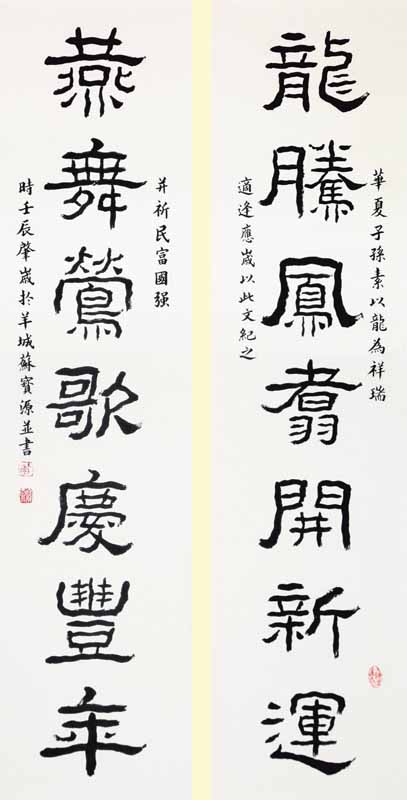 龍騰鳳翥開新運
華夏子孫素以龍為祥瑞
適逢應歲以此文紀之
燕舞鶯歌慶豐年
并祈民富國强
時壬辰肇歲於羊城蘇寶源並書